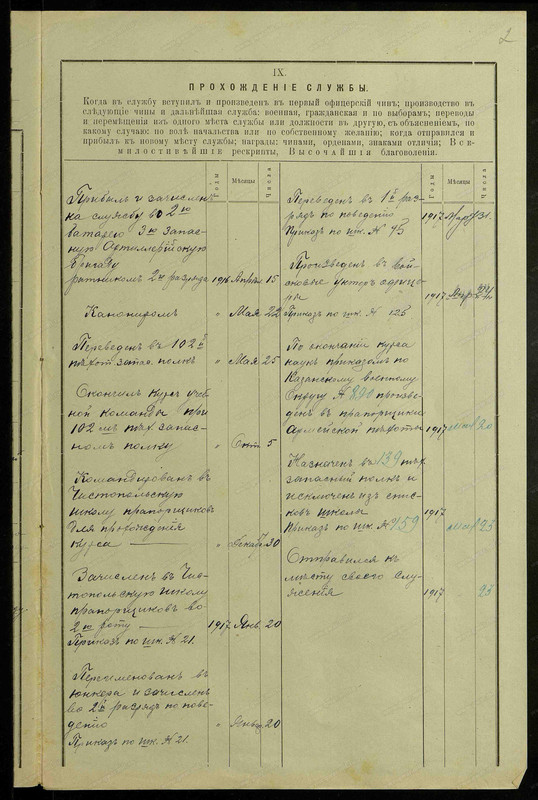 2
IX.
ПРОХОЖДЕНІЕ СЛУЖБЫ.
Когда въ службу вступилъ и произведенъ въ первый офицерскій чинъ; производство въ
слѣдующіе чины и дальнѣйшая служба: военная, гражданская и по выборамъ; переводы
и перемѣщенія изъ одного мѣста службы или должности въ другую, съ объясненіемъ, по
какому случаю: по волѣ начальства или по собственному желанію; когда отправился и
прибылъ къ новому мѣсту службы; награды: чинами, орденами, знаками отличія; Все-
милостивѣйшіе рескрипты, Высочайшія благоволенія.
Годы
Мѣсяцы
Числа
Прибылъ и зачисленъ
на службу во 2ю
батарею 3ю запас-
ную Артиллерійскую
бригаду
ратникомъ 2го разряда 1916 Апрѣля 15
Канониромъ " Мая 22
Переведенъ въ 102й
пѣхот. запас. полкъ " Мая 25
Окончилъ курсъ учеб-
ной команды при
102мъ пѣх. запас-
номъ полку " Окт. 5
Командированъ въ
Чистопольскую
школу прапорщиковъ
для прохожденія
курса " Декабр. 30
Зачисленъ въ Чис-
топольскую школу
прапорщиковъ во
2ю роту 1917 Янв. 20
Приказъ по шк. № 21.
Переименованъ въ
юнкера и зачисленъ
во 2й разрядъ по пове-
денію " Январ. 20
Приказъ по шк. № 21.
Годы
Мѣсяцы
Числа
Переведенъ въ 1й раз-
рядъ по поведенію 1917 31
Приказъ по шк. №
Произведенъ въ вой-
сковые унтеръ офице-
ры 1917
Приказъ по шк. № 125
По окончаніи курса
наукъ приказомъ по
Казанскому военному
Округу № 890 произве-
денъ въ прапорщики
Армейской пѣхоты 1917 20
Назначенъ въ 139 пѣх.
запасный полкъ и
исключенъ изъ спис-
ковъ школы 1917
Приказъ по шк. № 159 25
Отправился къ
мѣсту своего слу-
женія 1917 25